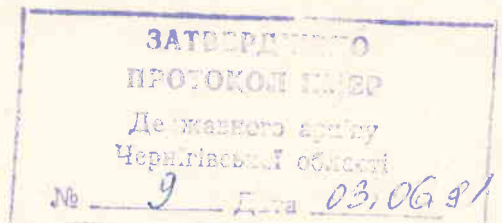 ЗАТВЕРДЖЕНО
ПРОТОКОЛ
Державного архіву
Чернігівської області
№ 9 Дата 03.06.91